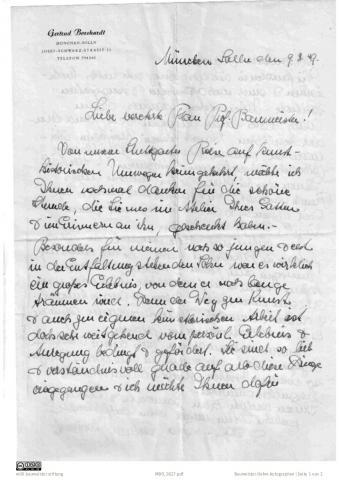 Gertrud Borchardt
MÜNCHEN-SOLLN
JOSEF-SCHWARZ-STRASSE 11
TELEFON 794340
München Solln den 9.
Liebe verehrte Frau Prof. Baumeister!
Von unserer Stuttgarter Reise auf kunst-
historischen Umwegen heimgekehrt, möchte ich
Ihnen nochmal danken für die schöne
Stunde, die Sie uns im Atelier Ihres Gatten
& im Erinnern an ihn, geschenkt haben.
Besonders für meinen noch so jungen & erst
in der Entfaltung stehenden Sohn war es wirklich
ein großes Erlebnis, von dem er noch lange
träumen wird. Denn der Weg zur Kunst
& auch zur eigenen künstlerischen Arbeit ist
doch sehr weitgehend vom persönl. Erlebnis &
Anregung bedingt & gefördert. Sie sind so lieb
& verständnisvoll gerade auf alle diese Dinge
eingegangen & ich möchte Ihnen dafür
willi baumeister stiftung
Baumeister Archiv Autographen | Seite 1 von 2